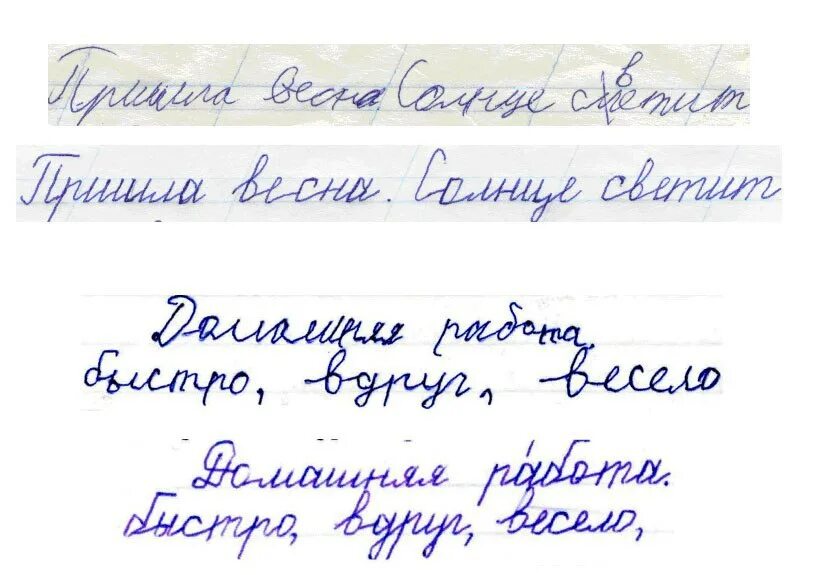 Пришла весна Солнце светит
Пришла весна. Солнце светит
Домашняя работа.
быстро, вдруг, весело
Домашняя работа.
быстро, вдруг, весело,